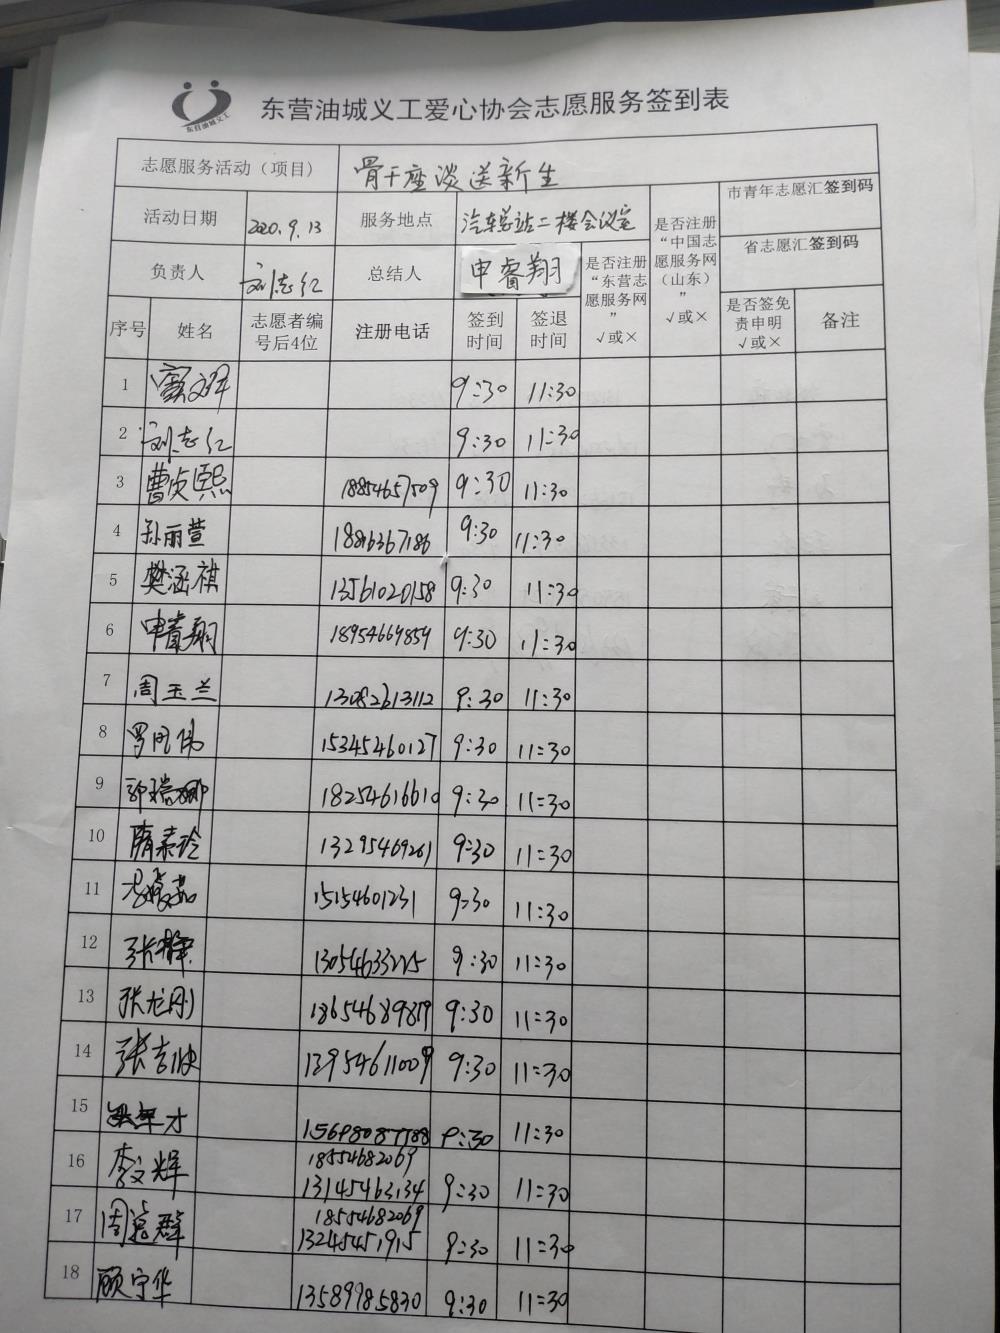 东营油城义工
东营油城义工爱心协会志愿服务签到表
志愿服务活动（项目） 骨干座谈送新生
活动日期 2020.9.13 服务地点 汽车总站二楼会议室 是否注册“中国志愿服务网（山东）” √或× 市青年志愿汇签到码
负责人 刘志红 总结人 申睿翔 是否注册“东营志愿服务网” √或× 省志愿汇签到码
序号 姓名 志愿者编号后4位 注册电话 签到时间 签退时间 是否签免责申明 √或× 备注
1 9:30 11:30
2 刘志红 9:30 11:30
3 曹贞熙 18854657509 9:30 11:30
4 孙丽萱 9:30 11:30
5 樊涵祺 13561020158 9:30 11:30
6 申睿翔 18954669859 9:30 11:30
7 周玉兰 13082613112 9:30 11:30
8 15345460127 9:30 11:30
9 郭瑞娜 18254616610 9:30 11:30
10 隋素玲 13295469261 9:30 11:30
11 15154601231 9:30 11:30
12 13054633225 9:30 11:30
13 张龙刚 9:30 11:30
14 13954611009 9:30 11:30
15 9:30 11:30
16 李文辉 18554682069 13145463134 9:30 11:30
17 18554682069 13245451915 9:30 11:30
18 顾宁华 13589985830 9:30 11:30